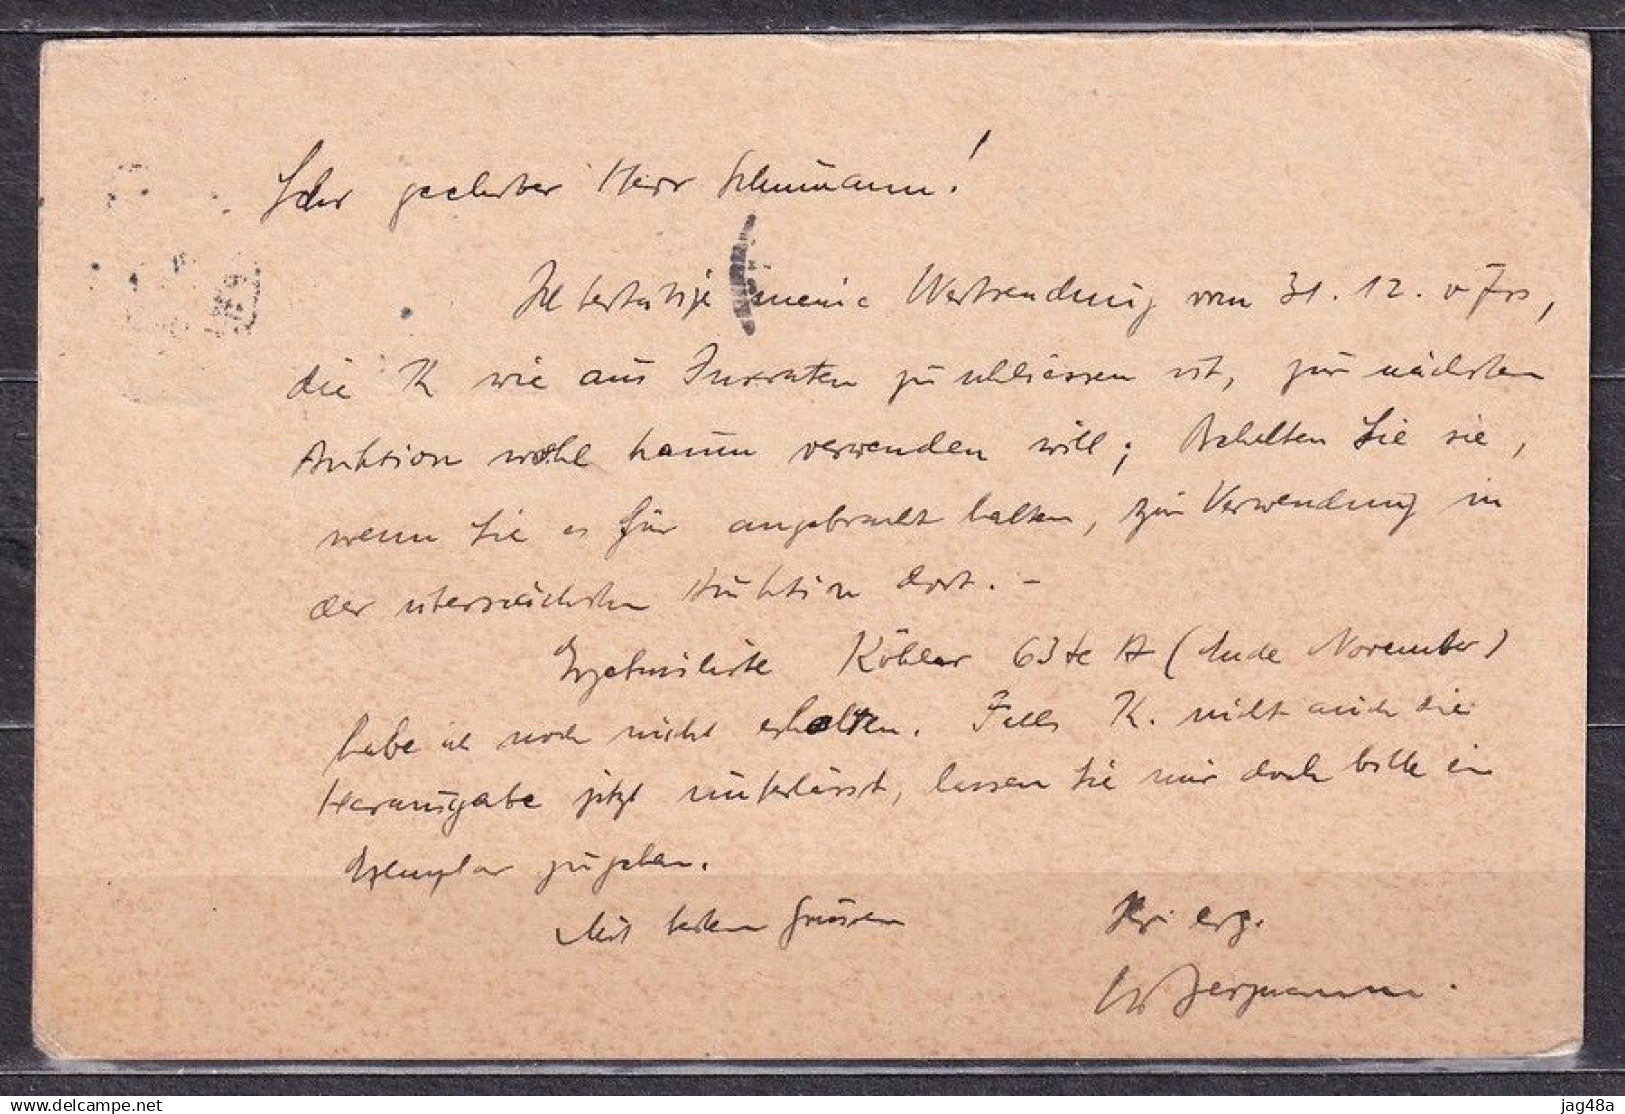 Sehr geehrter Herr Schumann!
Ich bestätige meine Wertsendung vom 31. 12. v Jrs,
die K wie aus Inseraten zu schliessen ist, zur nächsten
Auktion wohl kaum verwenden will; Behalten Sie sie,
wenn Sie es für angebracht halten, zur Verwendung in
der übernächsten Auktion dort. –
Ergebnisliste Köhler 63te A (Ende November)
habe ich noch nicht erhalten. Falls K. nicht auch die
Herausgabe jetzt unterlässt, lassen Sie mir doch bitte ein
Exemplar zugehen.
Mit besten Grüssen
Ihr erg.
Bergmann.
jag48a